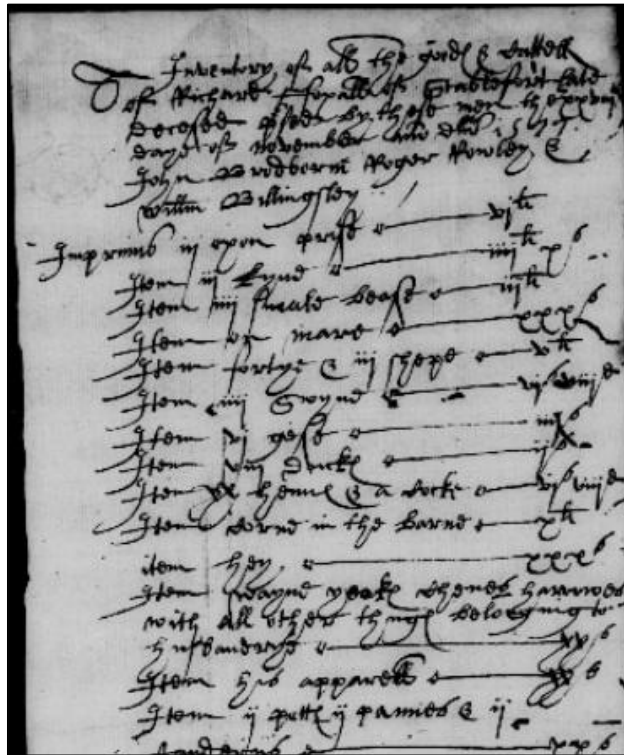 Inventory of all the goodes & cattell
of Richard Foxall of Stableford late
decesed by these men the xxviij
daye of november
John Roger Rowley &
Willm Billingsley
Imprimis iij oxen vi li
Item ij kyne iiij li x s
Item iiij smale beasse iij li
Item on mare xxx s
Item fortye & iij shepe v li
Item iiij swyne vi s viij d
Item vj gese iij s
Item viij duckes ij s
Item hennes & a cocke vi s viij d
Item corne in the barne x li
item hey xxx s
Item wayne yockes chenes harrowes
with all other thinges belonging to
husbandrye xx s
Item his apparell xx s
Item ij pottes ij pannes & ij
xxx s